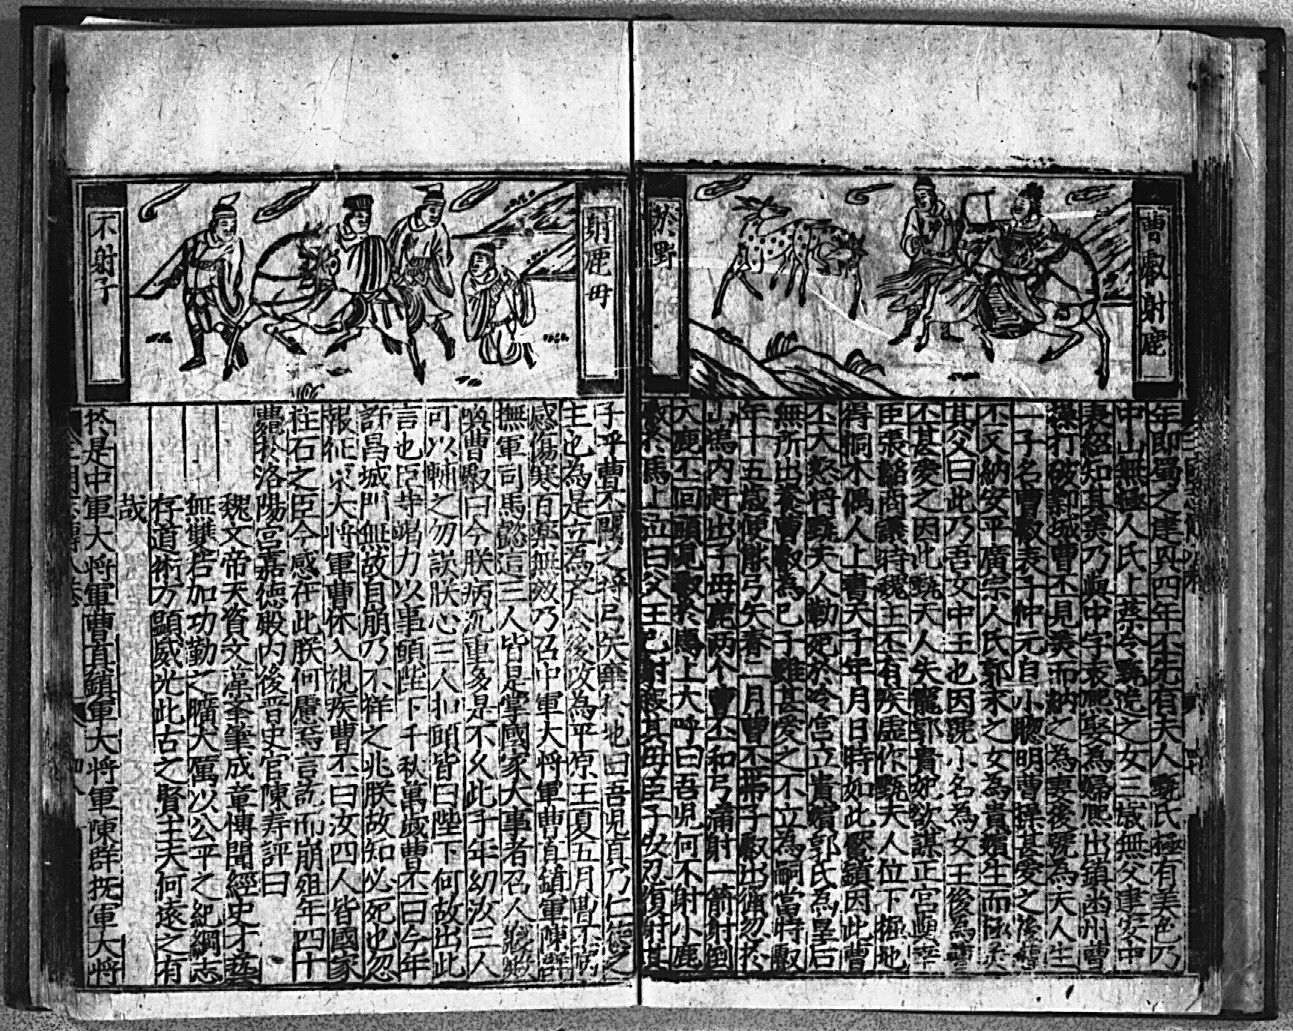 曹叡射鹿
於野
年即蜀之建興四年丕先有夫人甄氏極有美色乃
中山無極人氏上蔡令甄逸之女三歲無父建安中
袁紹知其美乃與中子袁熙娶為婦熙出鎮幽州曹
操打破鄴城曹丕見美而納之為妻後號為夫人生
一子名曹叡表字仲元自小聰明曹操甚愛之後
丕又納安平廣宗人氏郭永之女為貴嬪生而極美
其父曰此乃吾女中王也因號小名為女王後為曹
丕甚愛之因此甄夫人失寵郭貴妃欲謀正宮與幸
臣張韜商議時魏主丕有疾虛作甄夫人位下掘地
得桐木偶人上書天子年月日時如此魘鎮因此曹
丕大怒將甄夫人勒死於冷宮立貴嬪郭氏為皇后
無所出養曹叡為己子雖甚愛之不立為嗣當時叡
年十五歲便熟弓矢春二月曹丕帶子叡出獵忽於
山塢內趕出子母鹿两个曹丕和弓滿射一箭射倒
大鹿丕回頭見叡於馬上大呼曰吾兒何不射小鹿
叡於馬上泣曰父王已射殺其母臣子安忍復射其
射鹿母
不射子
子乎曹丕聞之將弓矢棄於地曰吾兒真乃仁德之
主也為是立為齊公後改為平原王夏五月曹丕病
感傷寒百藥無效乃召中軍大將軍曹真鎮軍陳群
撫軍司馬懿這三人皆是掌國家大事者召人寢殿
喚曹叡曰今朕病沉重多是不久此子年幼汝三人
可以輔之勿誤朕心三人扣頭皆曰陛下何故出此
言也臣等竭力以事願陛下千秋萬歲曹丕曰今年
許昌城門無故自崩乃不祥之兆朕故知必死也忽
報征東大將軍曹休入視疾曹丕曰汝四人皆國家
柱石之臣今感在此朕何慮焉言訖而崩殂年四十
薨於洛陽宮嘉德殿內後晉史官陳壽評曰
魏文帝天資文藻筆筆成章博聞經史才藝
無雙若加功勤之曠大厲以公平之紀綱志
存道術方顯威光此古之賢主夫何遠之有
哉
於是中軍大將軍曹真鎮軍大將軍陳群撫軍大將